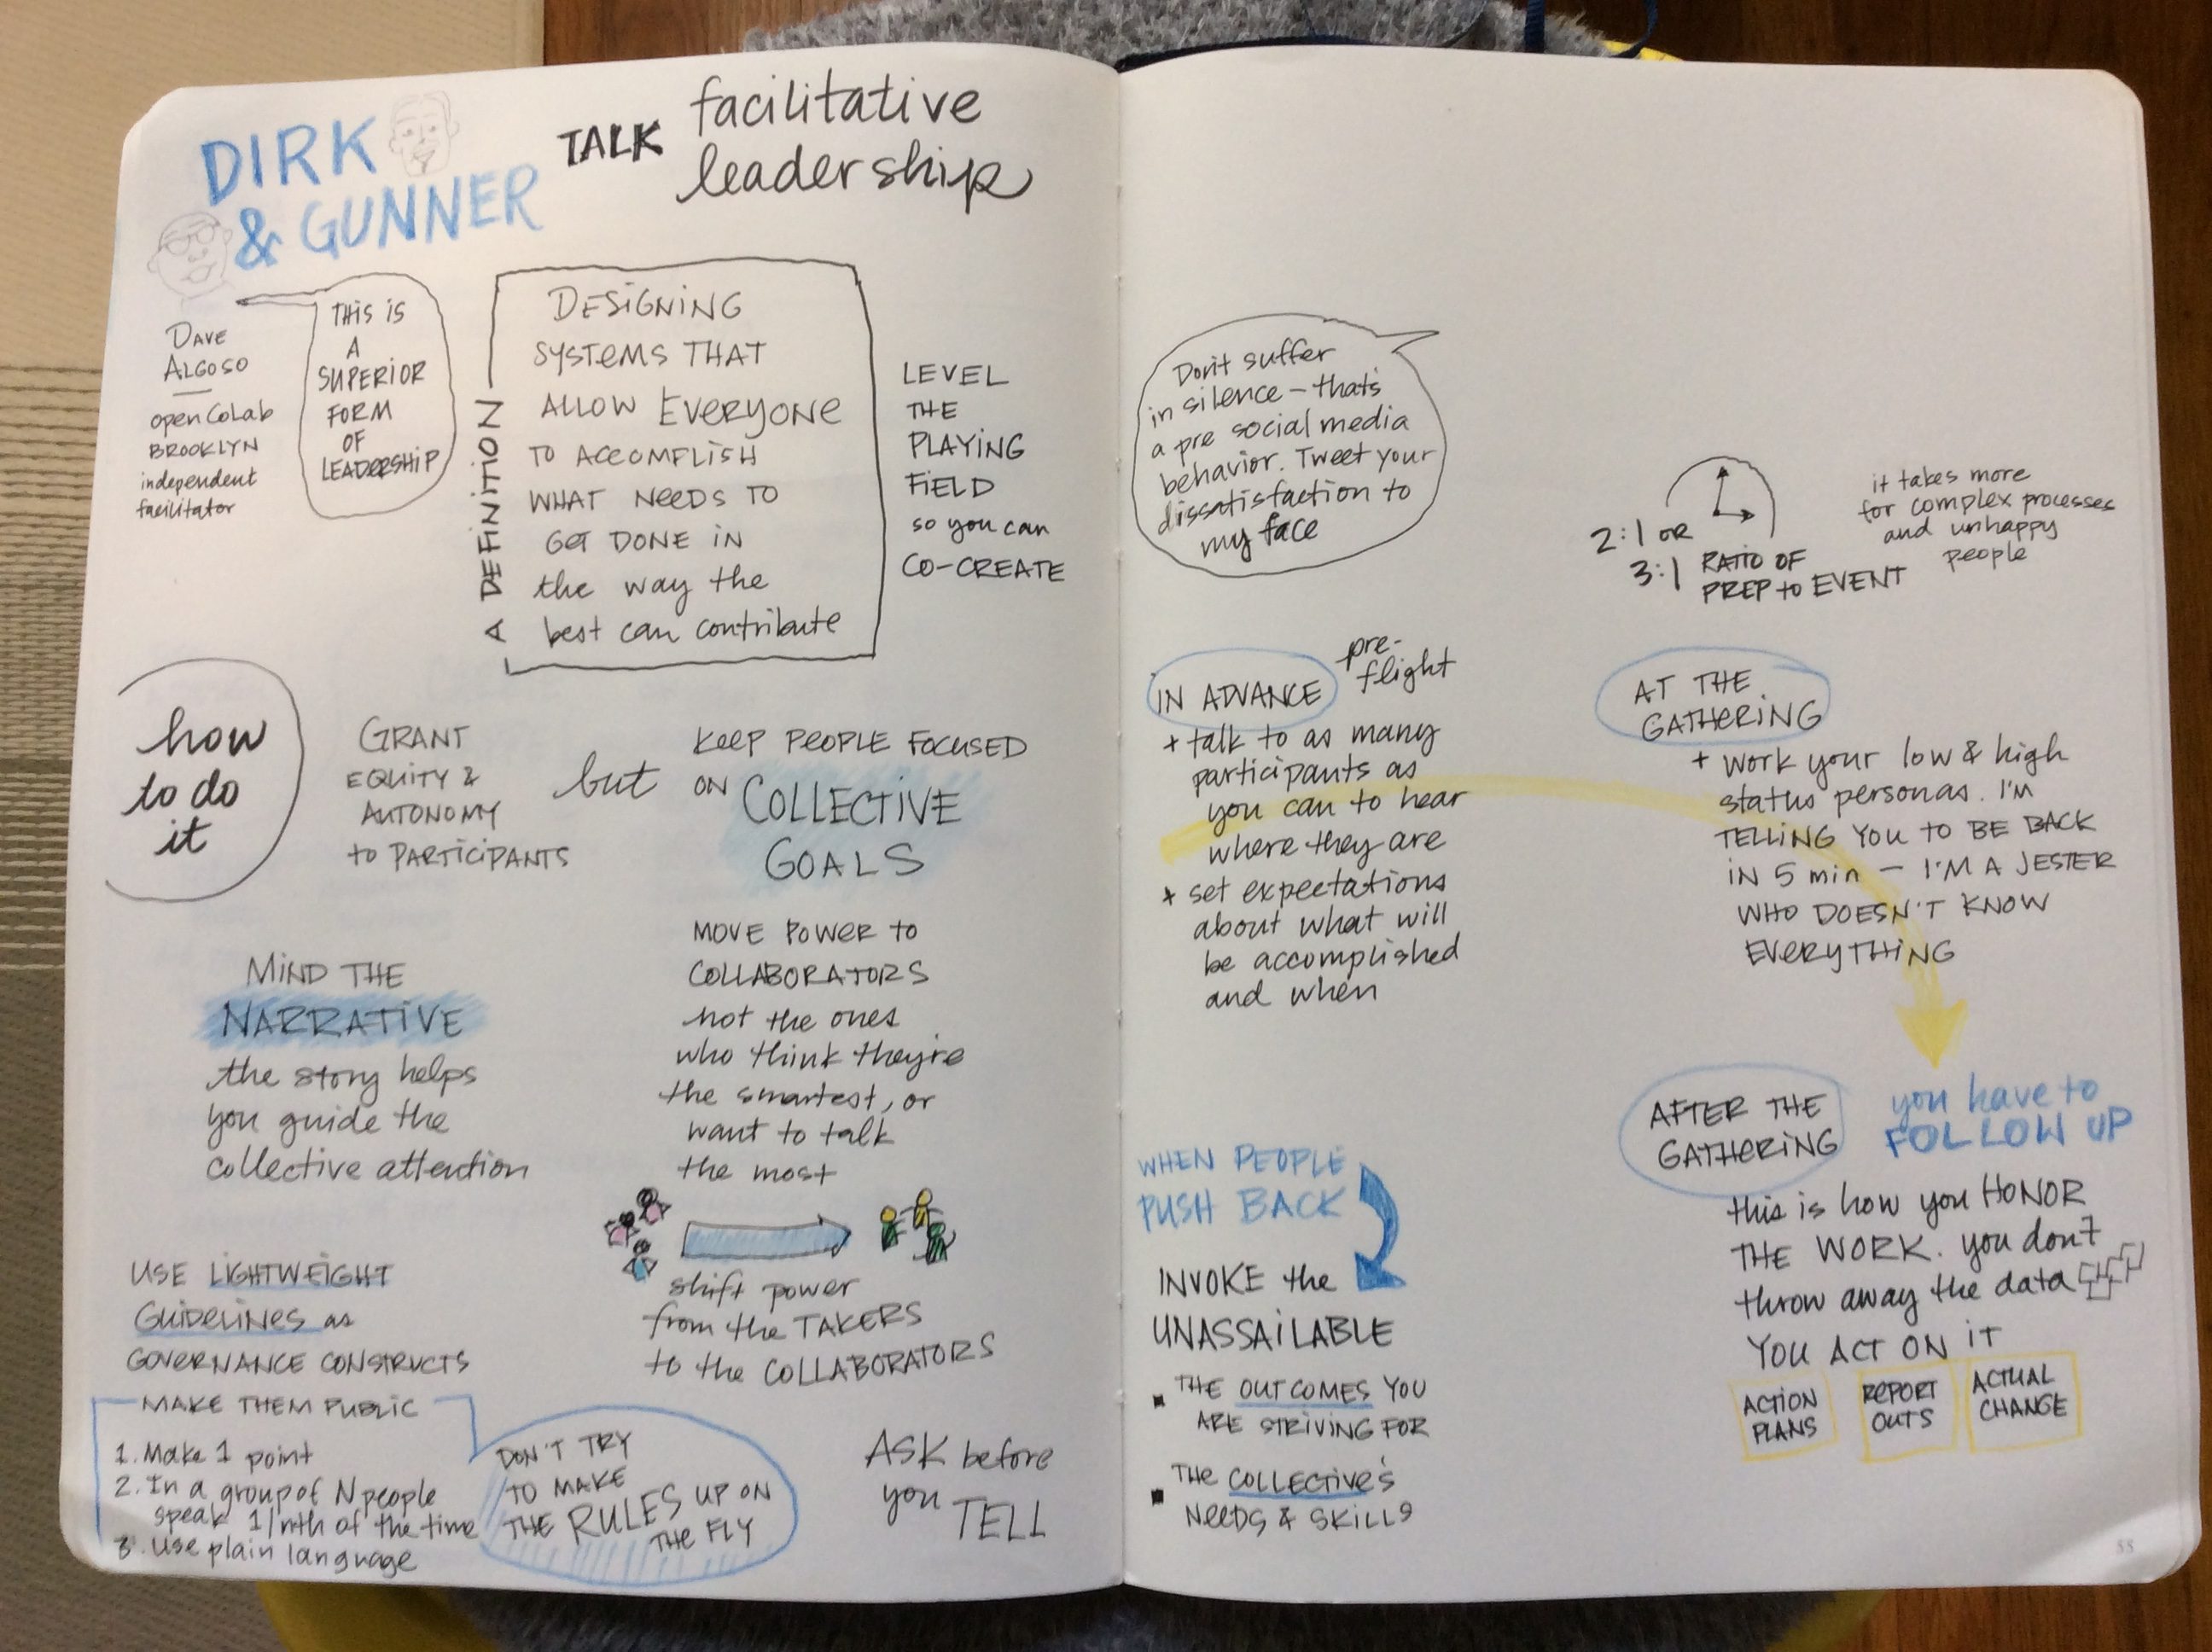 DIRK
& GUNNER
TALK
facilitative
leadership
DAVE
ALGOSO
—
openCoLab
BROOKLYN
independent
facilitator
THIS IS
A
SUPERIOR
FORM
OF
LEADERSHIP
A DEFINITION
DESIGNING
SYSTEMS THAT
ALLOW EVERYONE
TO ACCOMPLISH
WHAT NEEDS TO
GET DONE IN
the way the
best can contribute
LEVEL
THE
PLAYING
FIELD
so you can
CO-CREATE
how
to do
it
GRANT
EQUITY &
AUTONOMY
to PARTICIPANTS
but
KEEP PEOPLE FOCUSED
ON COLLECTIVE
GOALS
MIND THE
NARRATIVE
the story helps
you guide the
collective attention
MOVE POWER to
COLLABORATORS
not the ones
who think they're
the smartest, or
want to talk
the most
shift power
from the TAKERS
to the COLLABORATORS
USE LIGHTWEIGHT
GUIDELINES as
GOVERNANCE CONSTRUCTS
MAKE THEM PUBLIC
1. Make 1 point
2. In a group of N people
speak 1/nth of the time
3. Use plain language
DON'T TRY
TO MAKE
THE RULES UP ON
THE FLY
ASK before
you TELL
Don't suffer
in silence – that's
a pre social media
behavior. Tweet your
dissatisfaction to
my face
2:1 OR
3:1 RATIO OF
PREP to EVENT
it takes more
for complex processes
and unhappy
people
IN ADVANCE
pre-
flight
+ talk to as many
participants as
you can to hear
where they are
+ set expectations
about what will
be accomplished
and when
AT THE
GATHERING
+ work your low & high
status personas. I'M
TELLING YOU TO BE BACK
IN 5 min – I'M A JESTER
WHO DOESN'T KNOW
EVERYTHING
WHEN PEOPLE
PUSH BACK
INVOKE the
UNASSAILABLE
▪ THE OUTCOMES YOU
ARE STRIVING FOR
▪ THE COLLECTIVE'S
NEEDS & SKILLS
AFTER THE
GATHERING
you have to
FOLLOW UP
this is how you HONOR
THE WORK. you don't
throw away the data
YOU ACT ON IT
ACTION
PLANS
REPORT
OUTS
ACTUAL
CHANGE
55